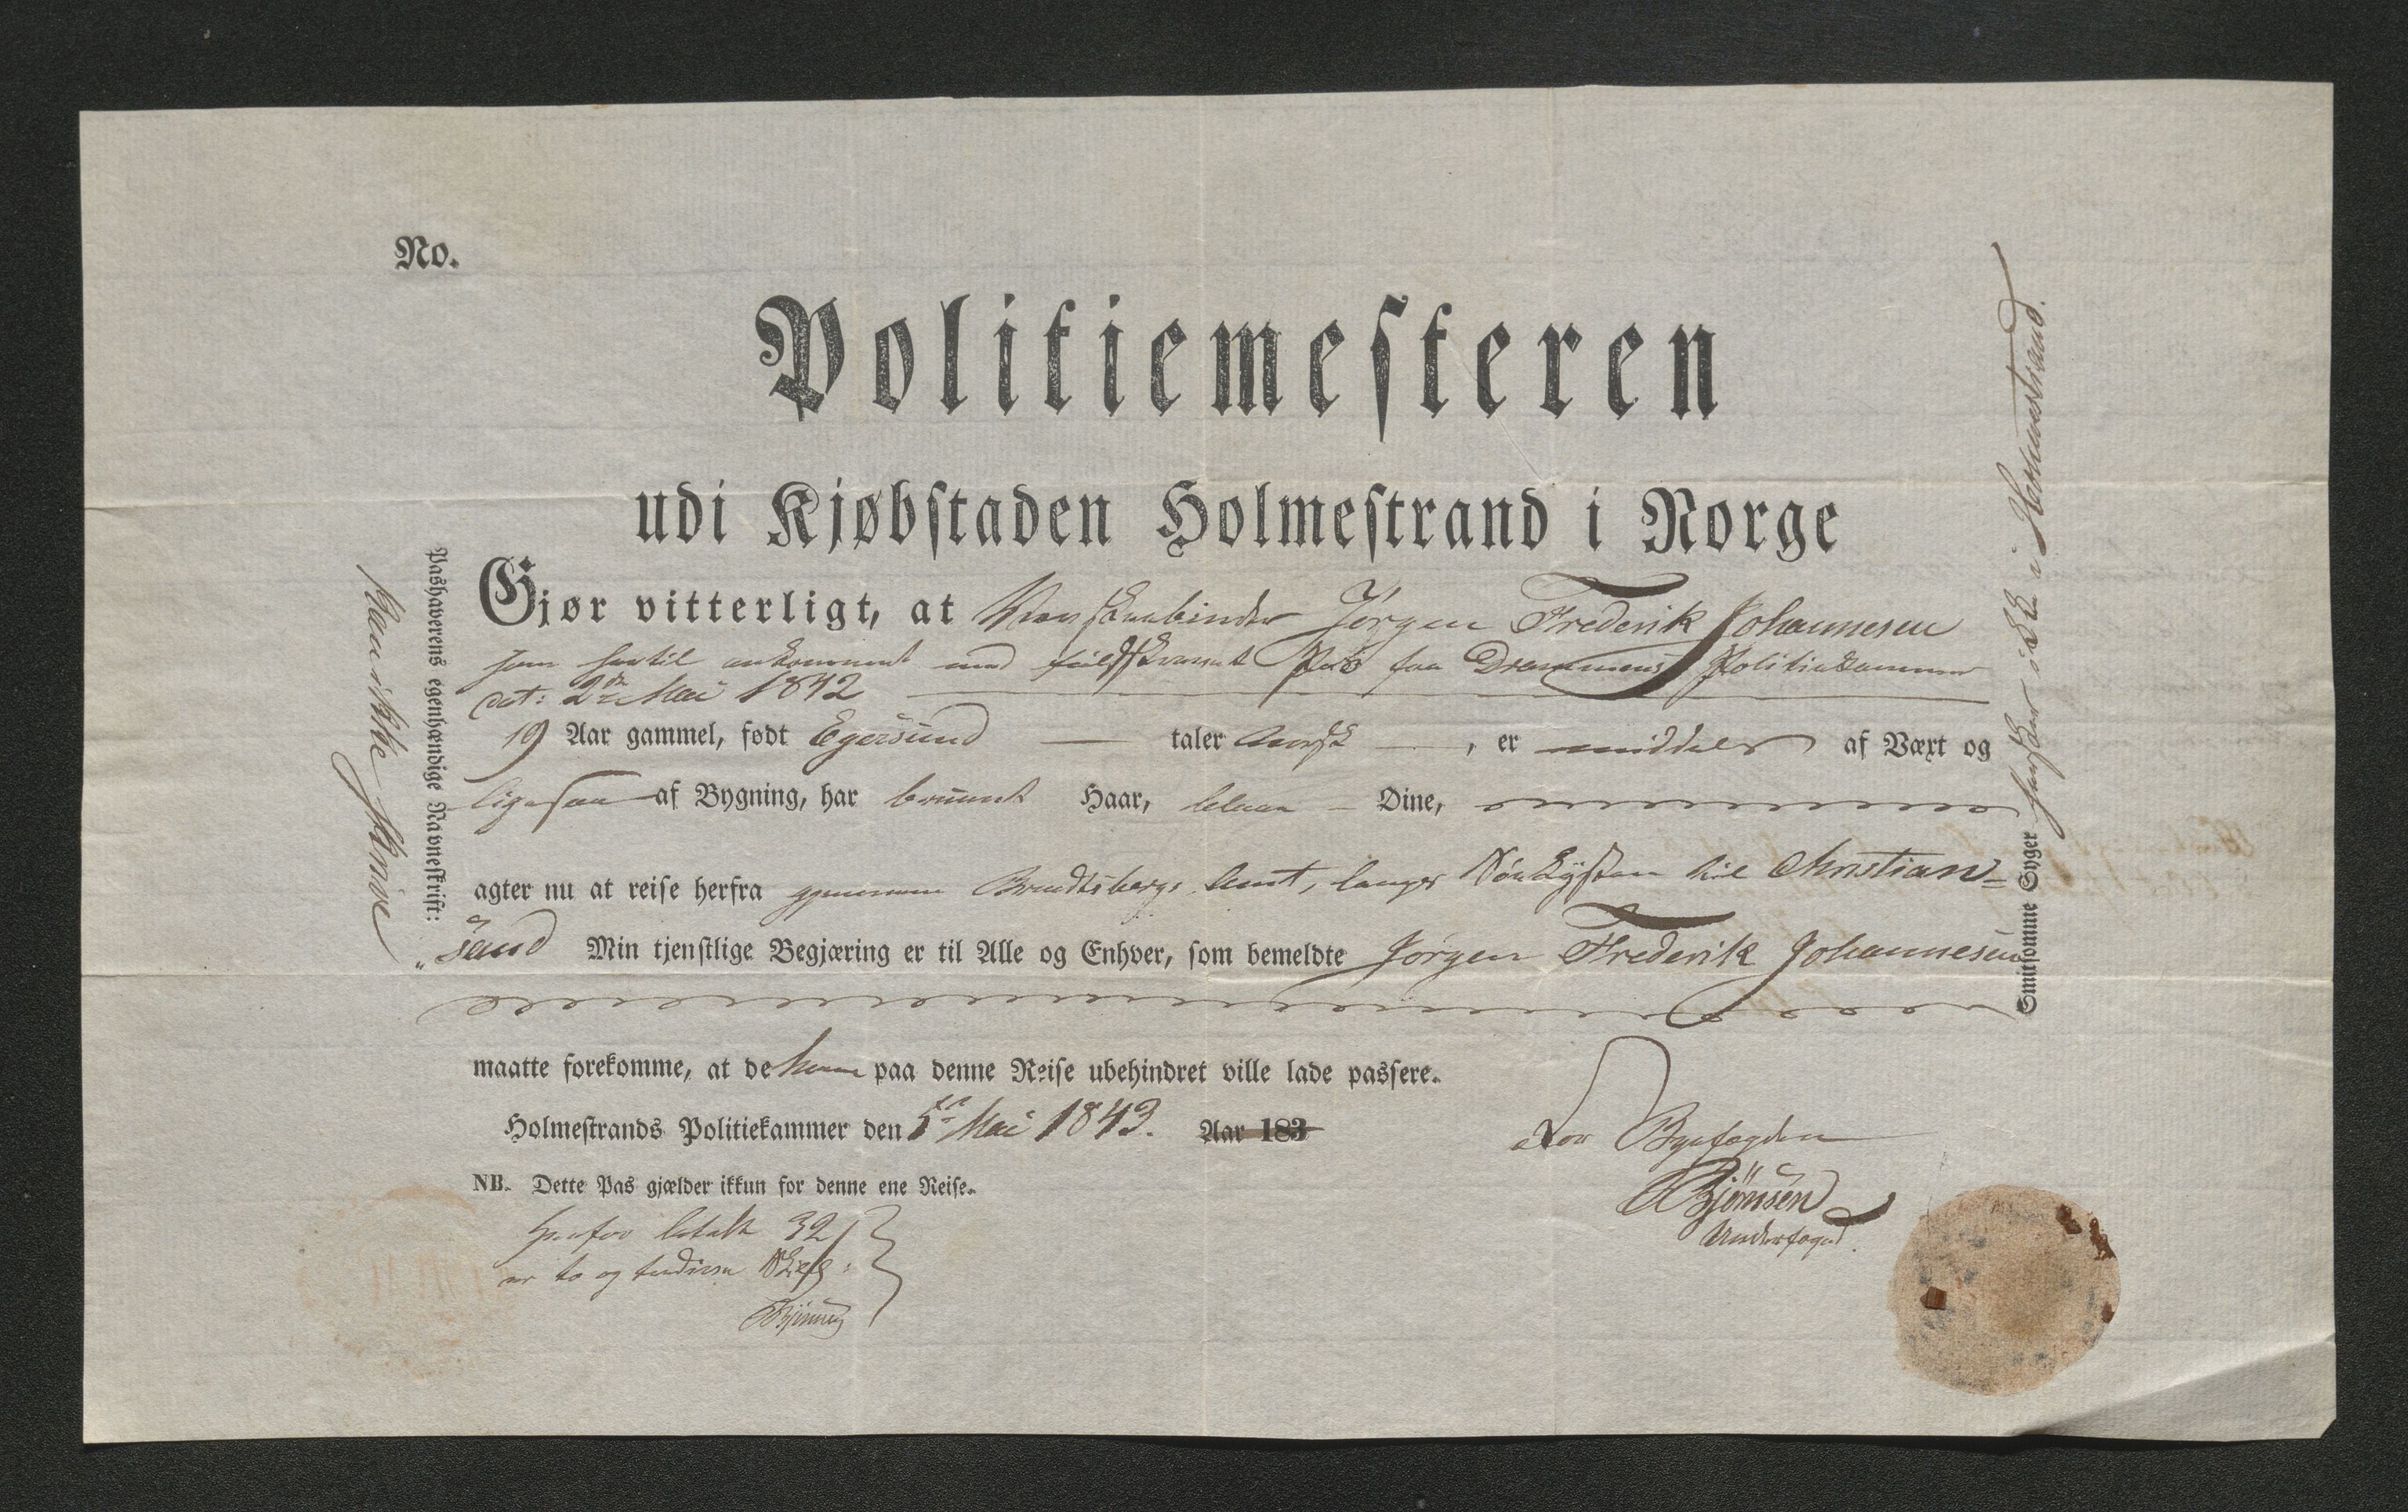 No.
Politiemesteren
udi Kjøbstaden Holmestrand i Norge
Gjør vitterligt, at Jørgen Frederik Johannesen
som hertil ankommet med Pas fra Drammens Politiekammer
dat: 2den Mai 1842
19 Aar gammel, født Egersund taler norsk, er middels af Væxt og
ligesaa af Bygning, har bruunt Haar, blaae Øine,
agter nu at reise herfra gjennem Bradtsbergs Amt, langs Søekysten til Christian-
„sand Min tjenstlige Begjæring er til Alle og Enhver, som bemeldte Jørgen Frederik Johannesen
maatte forekomme, at de ham paa denne Reise ubehindret ville lade passere.
Holmestrands Politiekammer den 5te Mai 1843. Aar 183
NB. Dette Pas gjælder ikkun for denne ene Reise.
Herfor betalt 32
er to og tredive Skill:
Bjönnsen
For Byefogden
Bjönnsen
Underfoged.
Pashaverens egenhændige Navneskrift:
Kan ikke skrive
Smitsomme Syger hersker ikke i Holmestrand.